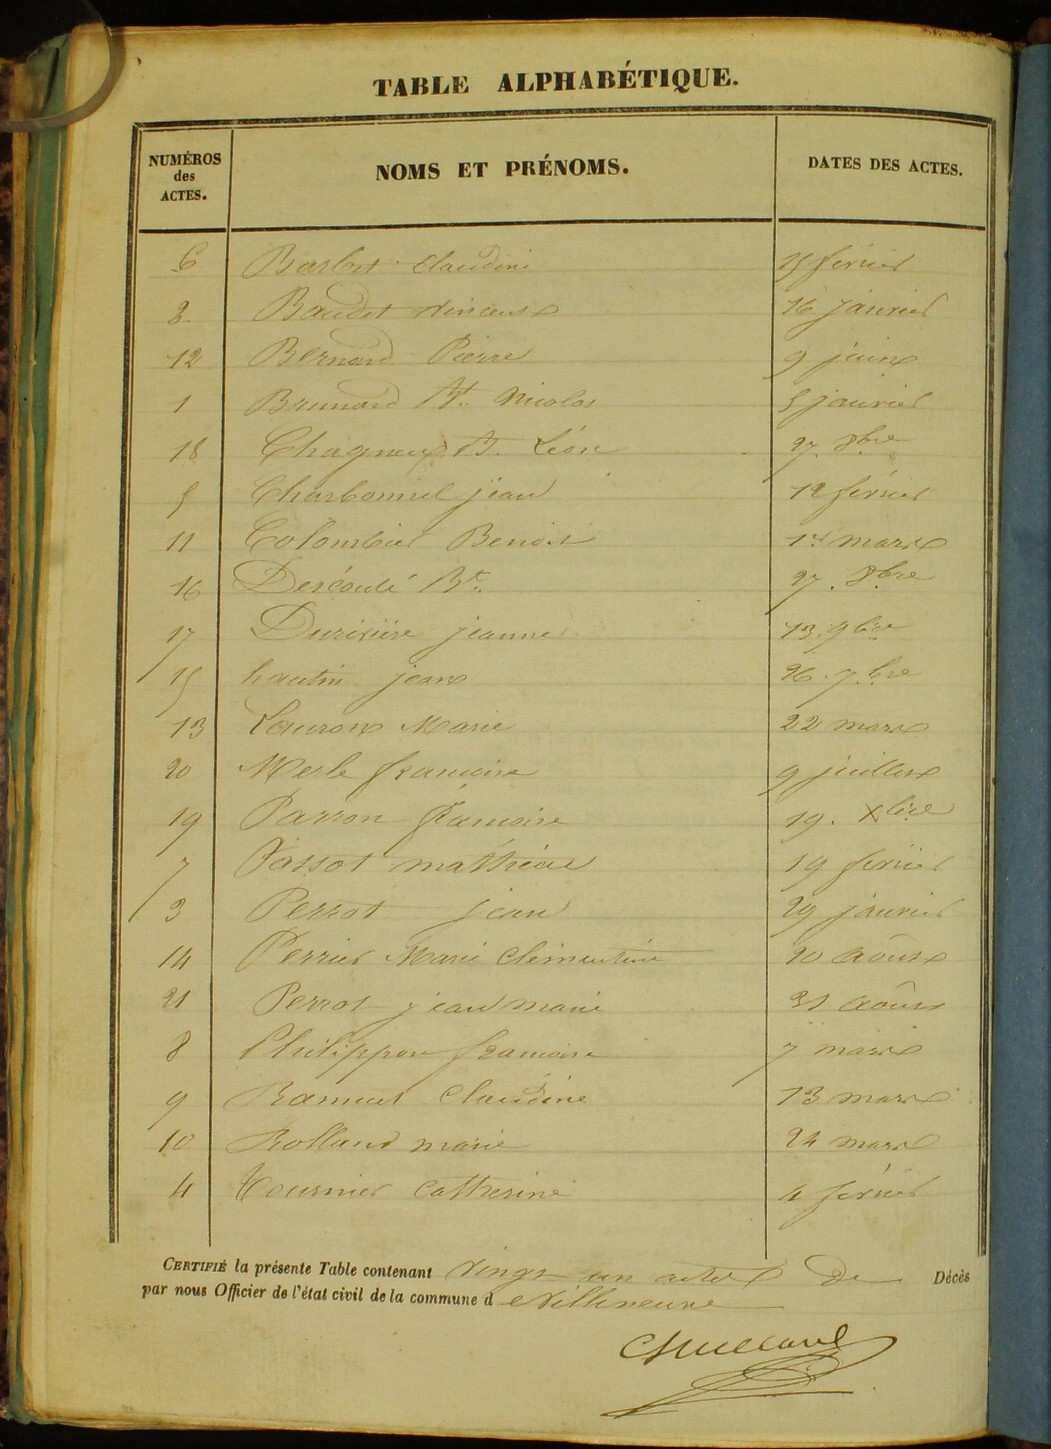 TABLE ALPHABÉTIQUE.
NUMÉROS
des
ACTES.
NOMS ET PRÉNOMS.
DATES DES ACTES.
6 Barbet Claudine 15 février
2 Baudet Vincent 16 janvier
12 Bernard Pierre 9 juin
1 Brunard Bt. Nicolas 5 janvier
18 Chagneux Bt. Léon 27. 9bre
5 Charbonnel jean 12 février
11 Colombier Benoit mars
16 Descouté Bte. 27. 8bre
17 Durixière jeanne 13. 9bre
15 hautin jean 26. 7bre
13 Lauron Marie 22 mars
20 Mesle françoise 9 juillet
19 Parron françoise 19. Xbre
7 Passot mathieu 19 février
3 Perrot jean 29 janvier
14 Perrier Marie Clémentine 20 août
21 Perrot jean marie 31 août
8 Philippon françoise 7 mars
9 Rameut Claudine 13 mars
10 Rolland marie 24 mars
4 Tournier Catherine 4 février
CERTIFIÉ la présente Table contenant vingt un actes De Décès
par nous Officier de l'état civil de la commune d e Villeneuve